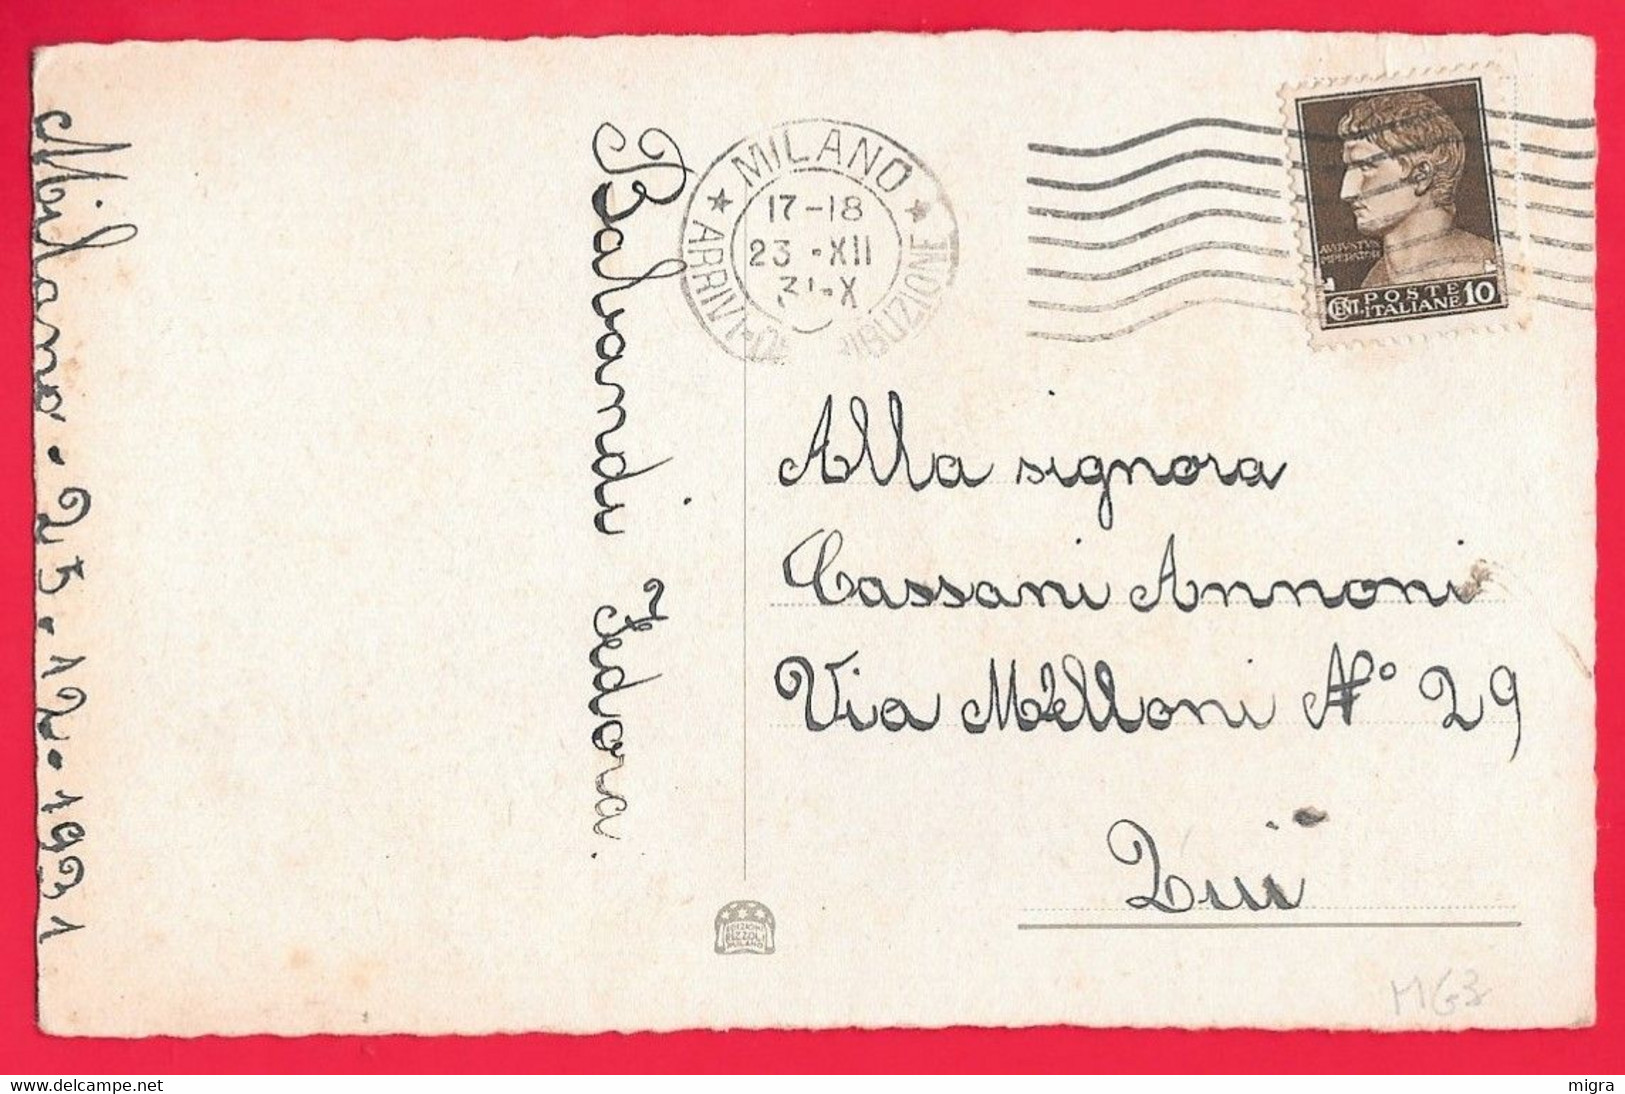 Milano. 25. 12. 1931
Balzandi Fedora.
MILANO
17-18
23 · XII
31-X
ARRIVI
BUZIONE
AVGVSTVS
IMPERATOR
CENT. POSTE ITALIANE 10
Alla signora
Cassani Annoni
Via Melloni N° 29
Qui
EDIZIONI
RIZZOLI
MILANO
MG3
www.delcampe.net
migra